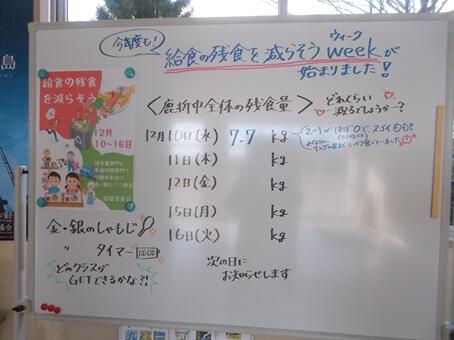 今年度も!
給食の残食を減らそうweekが
ウィーク
始まりました!
給食の残食
を減らそう
12月
10~16日
<鹿折中全体の残食量>
どれくらい
減るでしょうか…?
12月10日(水) 7.7 kg
11日(木) kg
12日(金) kg
15日(月) kg
16日(火) kg
金・銀のしゃもじ
〃 タイマー
どのクラスが
GETできるかな?!
次の日に
お知らせします
島